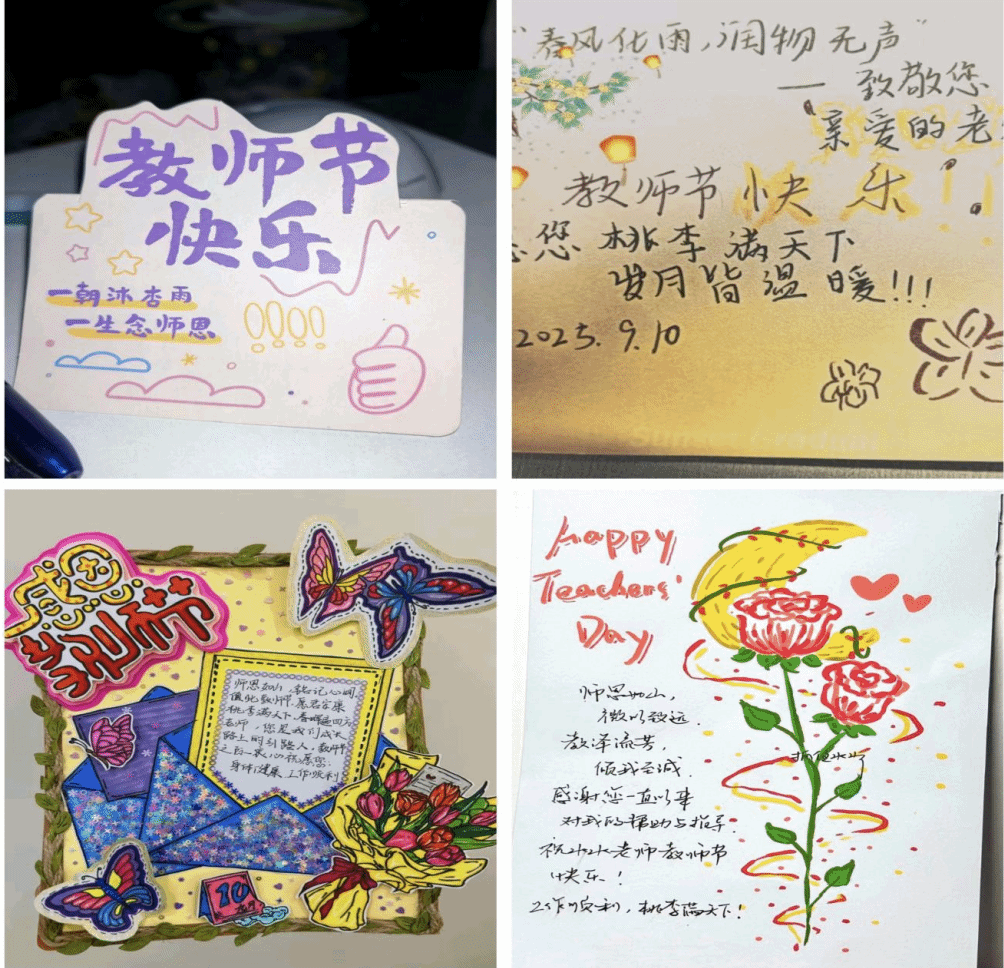 教师节
快乐
一朝沐杏雨
一生念师恩
"春风化雨,润物无声"
— 致敬您
亲爱的老
教师节快乐!!
您桃李满天下
岁月皆温暖!!!
2025.9.10
感恩
教师节
师恩如山,铭记心间
值此教师节,愿君安康
桃李满天下,春晖遍四方
老师,您是我们成长
路上的引路人,教师节
之日,衷心祝愿您:
身体健康 工作顺利
10
Happy
Teachers'
Day
师恩如山,
微以致远.
教泽流芳,
倾我至诚.
感谢您一直以来
对我的帮助与指导.
祝水水老师教师节
快乐!
工作顺利,桃李满天下!